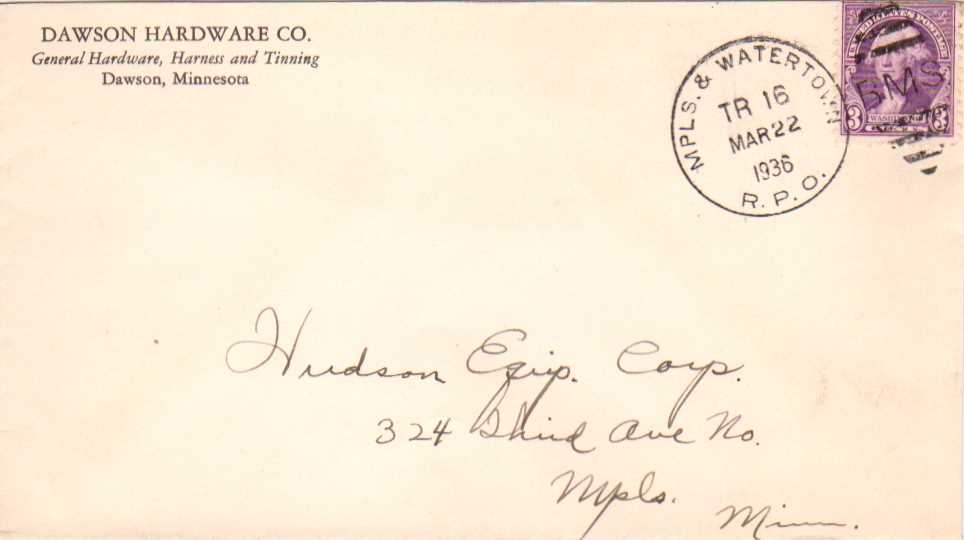 DAWSON HARDWARE CO.
General Hardware, Harness and Tinning
Dawson, Minnesota
MPLS. & WATERTOWN
TR 16
MAR 22
1936
R. P. O.
UNITED STATES POSTAGE
RMS
3 WASHINGTON 3
Hudson Eqip. Corp.
324 Third Ave No.
Mpls.
Minn.